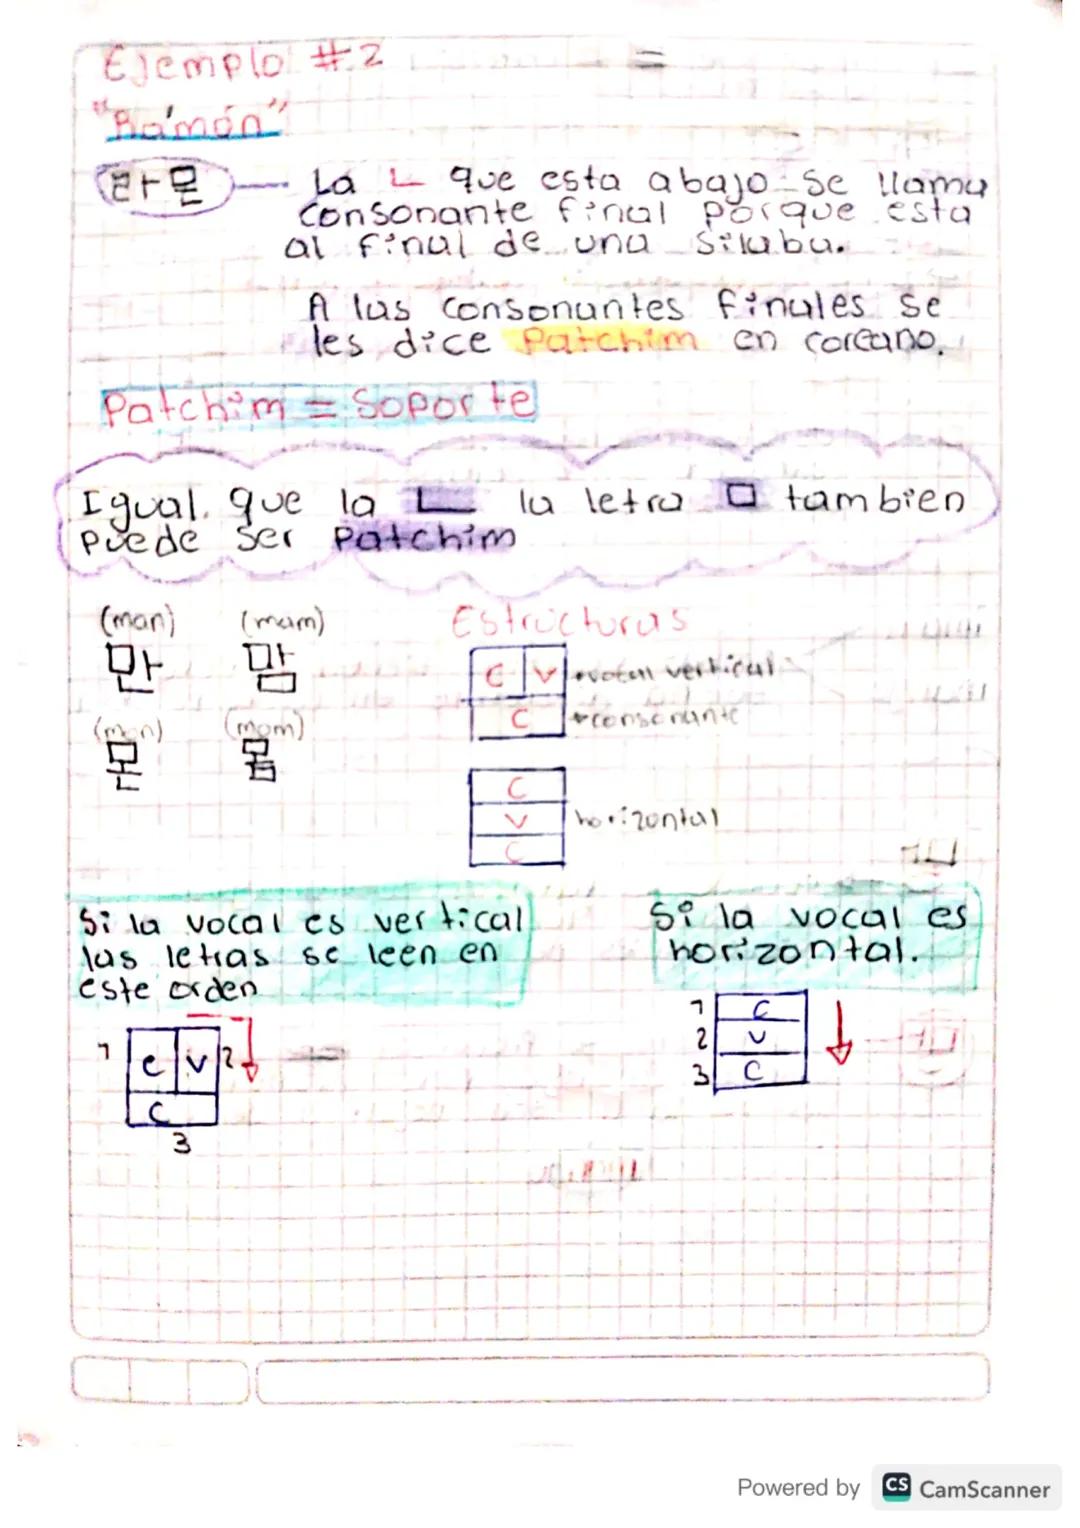 Ejemplo #2
"Ramón"
라몬 — La ㄴ que esta abajo se llama
consonante final porque esta
al final de una silaba.
A las consonantes finales se
les dice Patchim en coreano.
Patchim = Soporte
Igual que la ㄴ la letra ㅁ tambien
puede ser Patchim
(man) (mam)
만 맘
(mon) (mom)
몬 몸
Estructuras
C V vocal vertical
C consonante
C
V horizontal
C
Si la vocal es vertical
las letras se leen en
este orden
1 C V 2
C
3
Si la vocal es
horizontal.
1 C
2 V
3 C
Powered by CS CamScanner